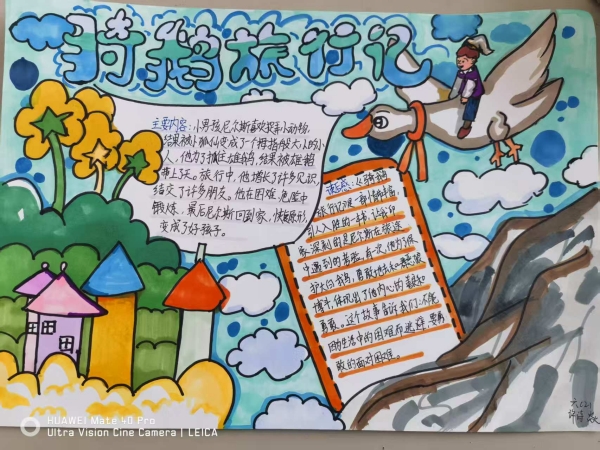 骑鹅旅行记
主要内容：小男孩尼尔斯喜欢捉弄小动物，
结果被小狐仙变成了一个拇指般大小的小
人，他为了抓住雄鹅，结果被雄鹅
带上了天。旅行中，他增长了许多见识，
结交了许多朋友。他在困难、危险中
锻炼，最后尼尔斯回到家，恢复原形，
变成了好孩子。
读后感：《骑鹅
旅行记》是一部情节丰富，
引人入胜的一书，让我印
象深刻的是尼尔斯在旅途
中遇到的考验。有一次，他为了保
护大白鹅，勇敢地去和狐狸
搏斗，体现出了他内心的善良和
勇敢。这个故事告诉我们：不能
因为生活中的困难而逃避，要勇
敢的面对困难。
六(2)
HUAWEI Mate 40 Pro
Ultra Vision Cine Camera | LEICA